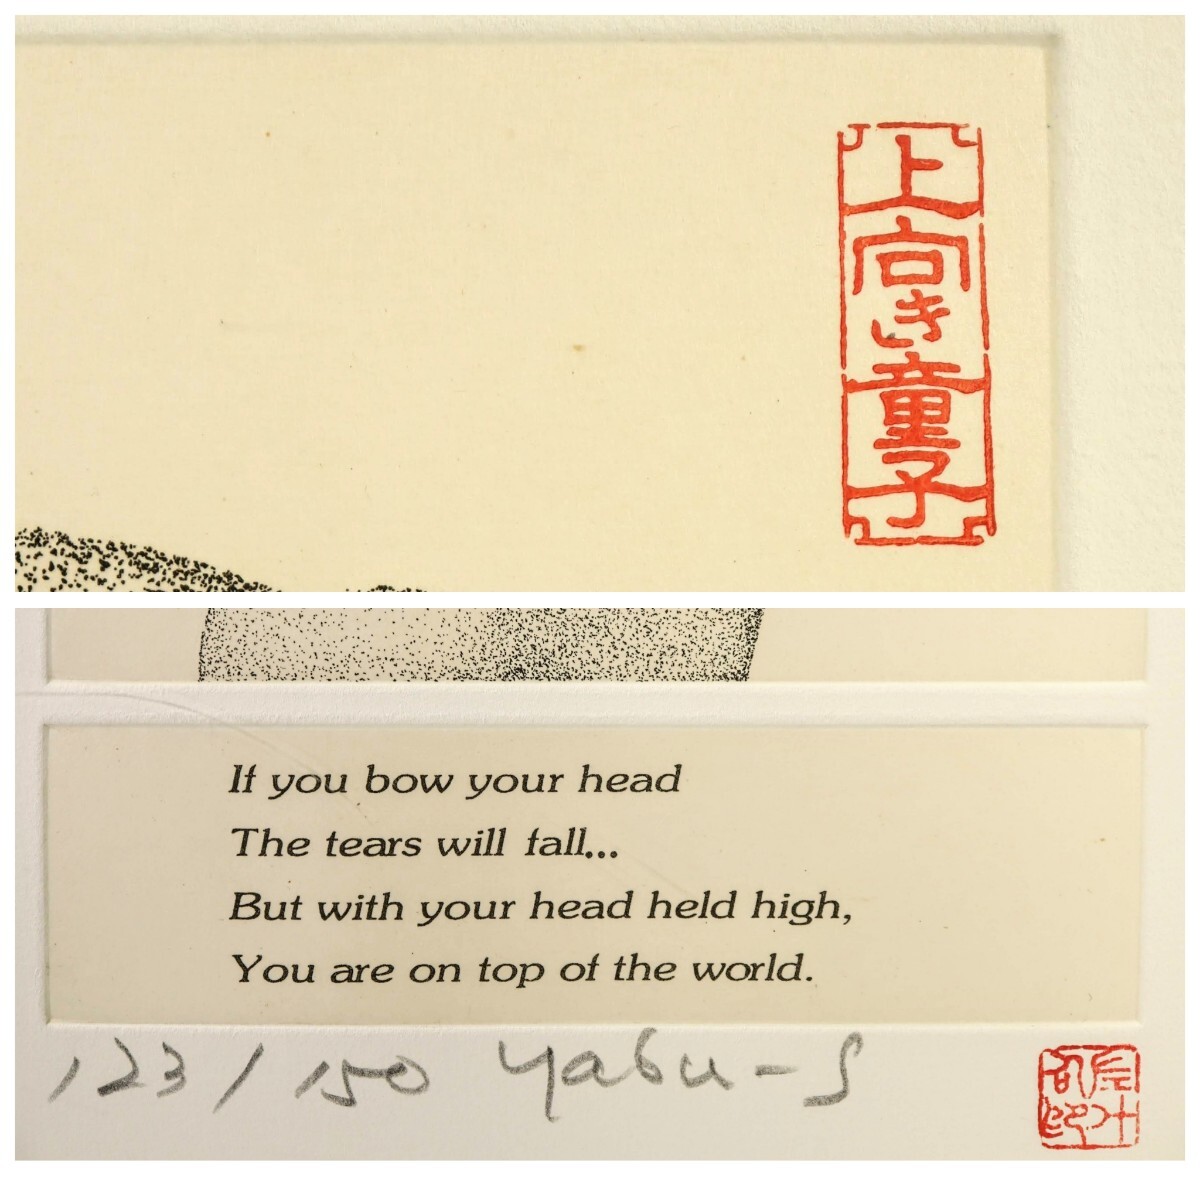 上向き童子
If you bow your head
The tears will fall...
But with your head held high,
You are on top of the world.
123/150 yabu-S